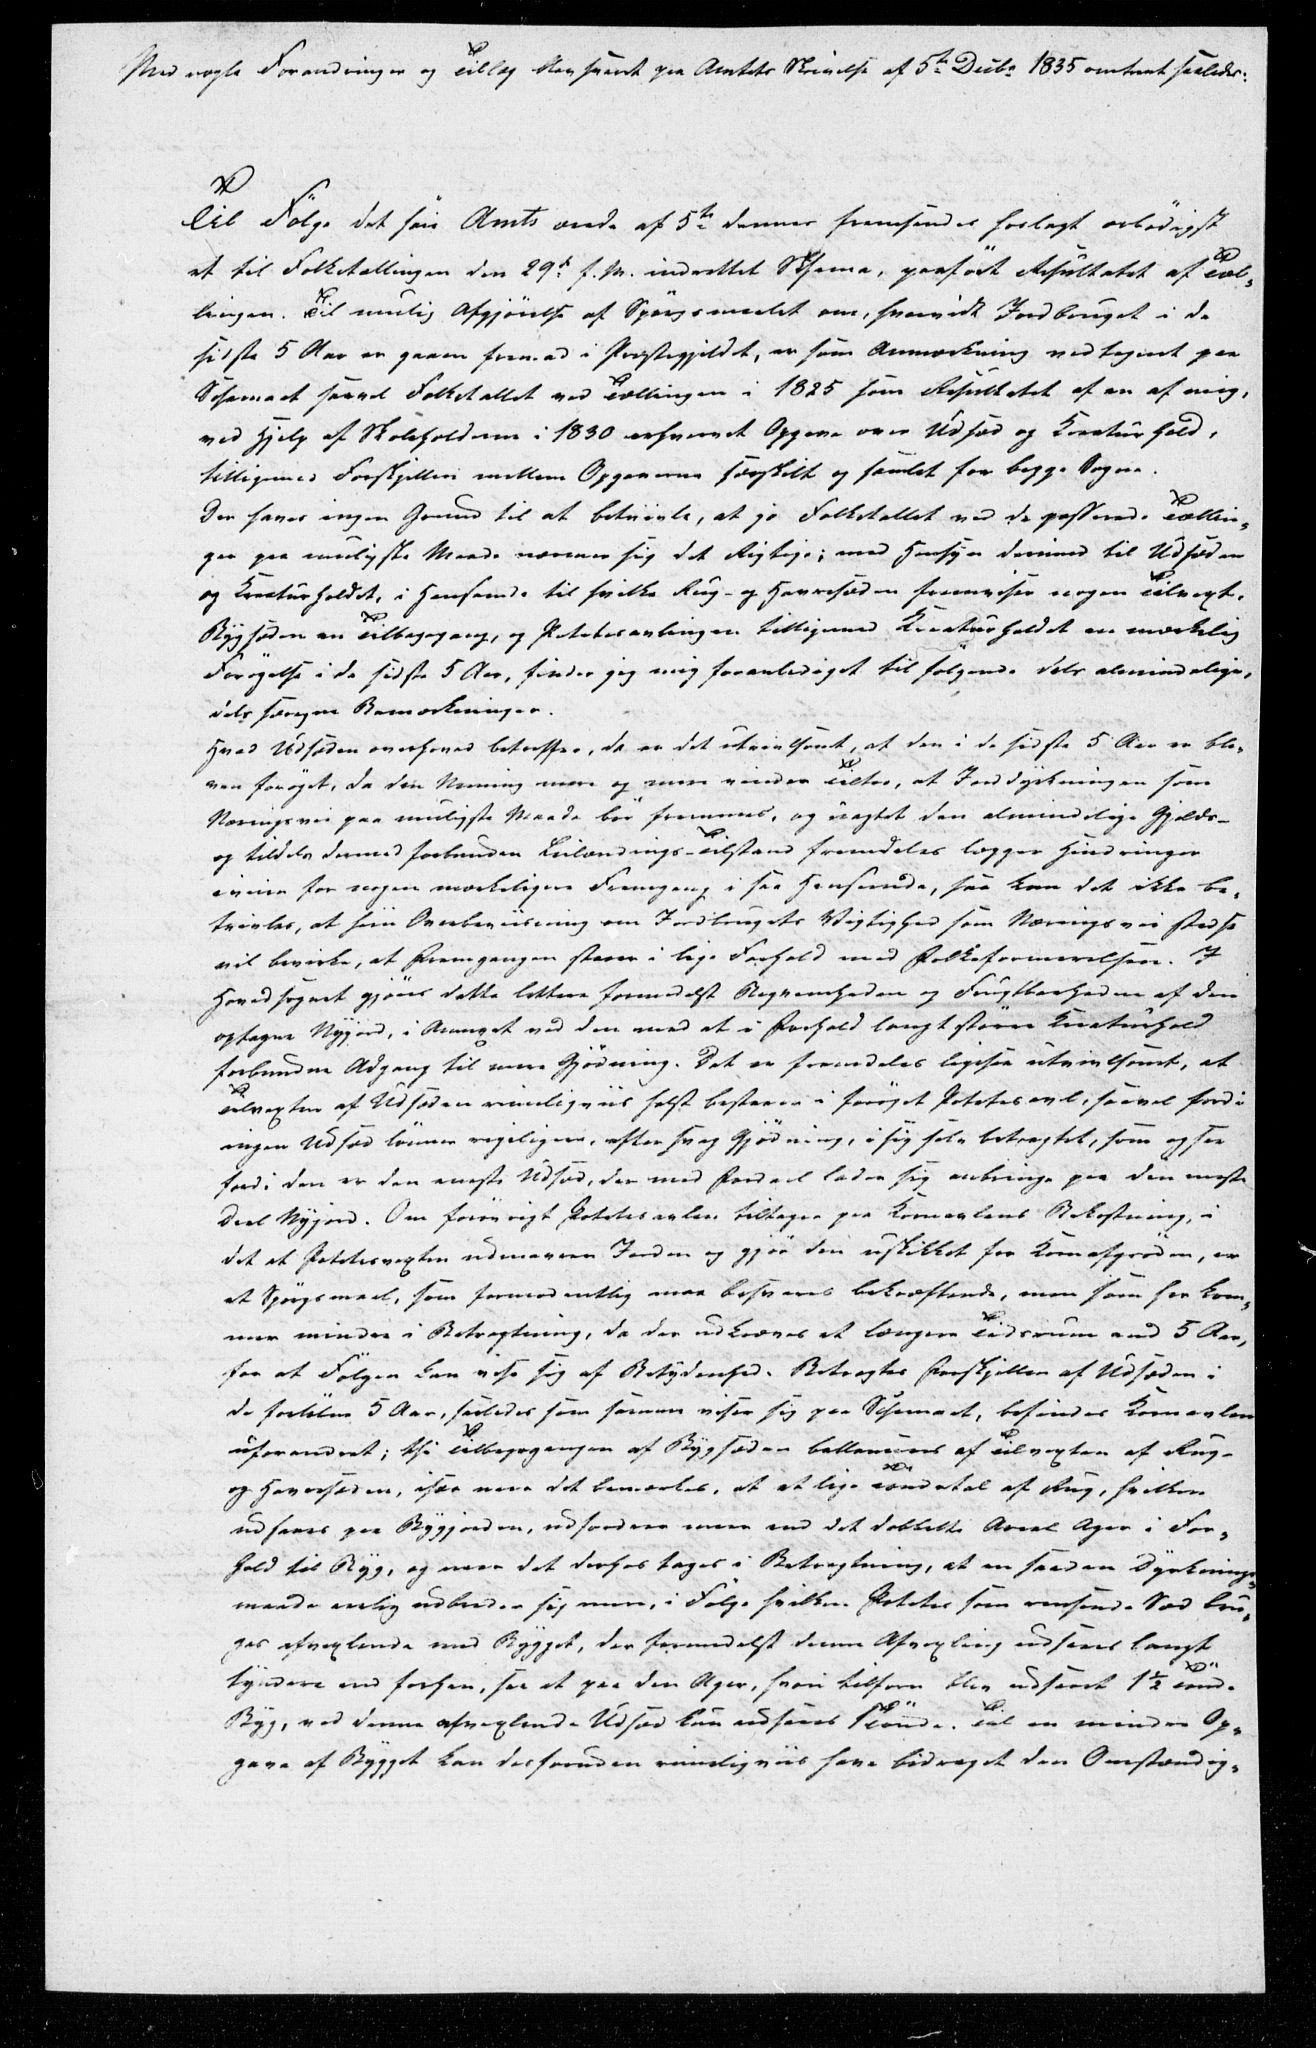 Med nogle Forandringer og Tillæg blev svaret paa Amtets Skrivelse af 5te Decbr 1835 omtrent saaledes:
Til Følge det høie Amts ordre af 5te dennes fremsendes hoslagt ærbødigst
et til Folketællingen den 29de f. M. indrettet Schema, paaført Resultatet af Tæl-
lingen. Til mulig Afgjørelse af Spørgsmaalet om, hvorvidt Jordbruget i de
sidste 5 Aar er gaaen fremad i Præstegjeldet, er som Anmærkning vedtegnet paa
Schemaet saavel Folketallet ved Tællingen i 1825 som Resultatet af en af mig,
ved Hjelp af Skoleholderne i 1830 erhvervet Opgave over Udsæd og Kreaturhold,
tilligemed Forskjellen mellem Opgaverne særskilt og samlet for begge Sogne.
Der haves ingen Grund til at betvivle, at jo Folketallet ved de passerede Tællin-
ger paa muligste Maade nærmer sig det Rigtige; med Hensyn derimod til Udsæden
og Kreaturholdet, i Henseende til hvilke Rug- og Havresæden fremviser nogen Tilvext,
Bygsæden en Tilbagegang, og Potetesavlingen tilligemed Kreaturholdet en mærkelig
Forøgelse i de sidste 5 Aar, finder jeg mig foranlediget til følgende dels almindelige,
dels særegne Bemærkninger.
Hvad Udsæden overhoved betræffer, da er det utvivlsomt, at den i de sidste 5 Aar er ble-
ven forøget, da den Mening mere og mere vinder Tiltro, at Jorddyrkningen som
Næringsvei paa muligste Maade bør fremmes, og uagtet den almindelige Gjelds-
og tildels dermed forbundne Leilændings-Tilstand fremdeles lægger Hindringer
iveien for nogen mærkeligere Fremgang i saa Henseende, saa kan det ikke be-
tvivles, at hiin Overbeviisning om Jordbrugets Vigtighed som Næringsvei stedse
vil bevirke, at Fremgangen staaer i lige Forhold med Folkeformerelsen. I
Hovedsognet gjøres dette lettere formedelst Beqvemheden og Frugtbarheden af den
optagne Nyjord, i Annexet ved den med et i Forhold langt større Kreaturhold
forbundne Adgang til mere Gjødning. Det er fremdeles ligesaa utvivlsomt, at
Tilvexten af Udsæden rimeligviis helst bestaaer i forøget Potetesavl, saavel fordi
ingen Udsæd lønner rigeligere, efter svag Gjødning, i sig selv betragtet, som ogsaa
fordi den er den eneste Udsæd, der med Fordeel lader sig anbringe paa den meste
Deel Nyjord. Om forøvrigt Potetesavlen tiltager paa Kornavlens Bekostning, i
det at Potetesvexten udmavrer Jorden og gjør den uskikket for Kornafgrøden, er
et Spørgsmaal, som formodentlig maa besvares bekræftende, men som her kom-
mer mindre i Betragtning, da der udkræves et længere Tidsrum end 5 Aar,
for at Følgen kan vise sig af Betydenhed. Betragtes Forskjellen af Udsæden i
de forløbne 5 Aar, saaledes som samme viser sig paa Schemaet, befindes Kornavlen
uforandret; thi Tilbagegangen af Bygsæden ballanceres af Tilvexten af Rug-
og Havresæden, især naar det bemærkes, at et lige Tøndetal af Rug, hvilken
udsaaes paa Bygjorden, udfordrer mere end det dobbelte Areal Ager i For-
hold til Byg, og naar det derhos tages i Betragtning, at en saadan Dyrknings-
maade aarlig udbreder sig mere, i Følge hvilken Potetes som rensende Sæd bru-
ges afvexlende med Bygget, der formedelst denne Afvexling udsaaes langt
tyndere end forhen, saa at paa den Ager, hvori tilforn blev udsaaet 1½ Tønde
Byg, ved denne afvexlende Udsæd kun udsaaes 1 Tønde. Til en mindre Op-
gave af Bygget kan desforuden rimeligviis have bidraget den Omstændig-